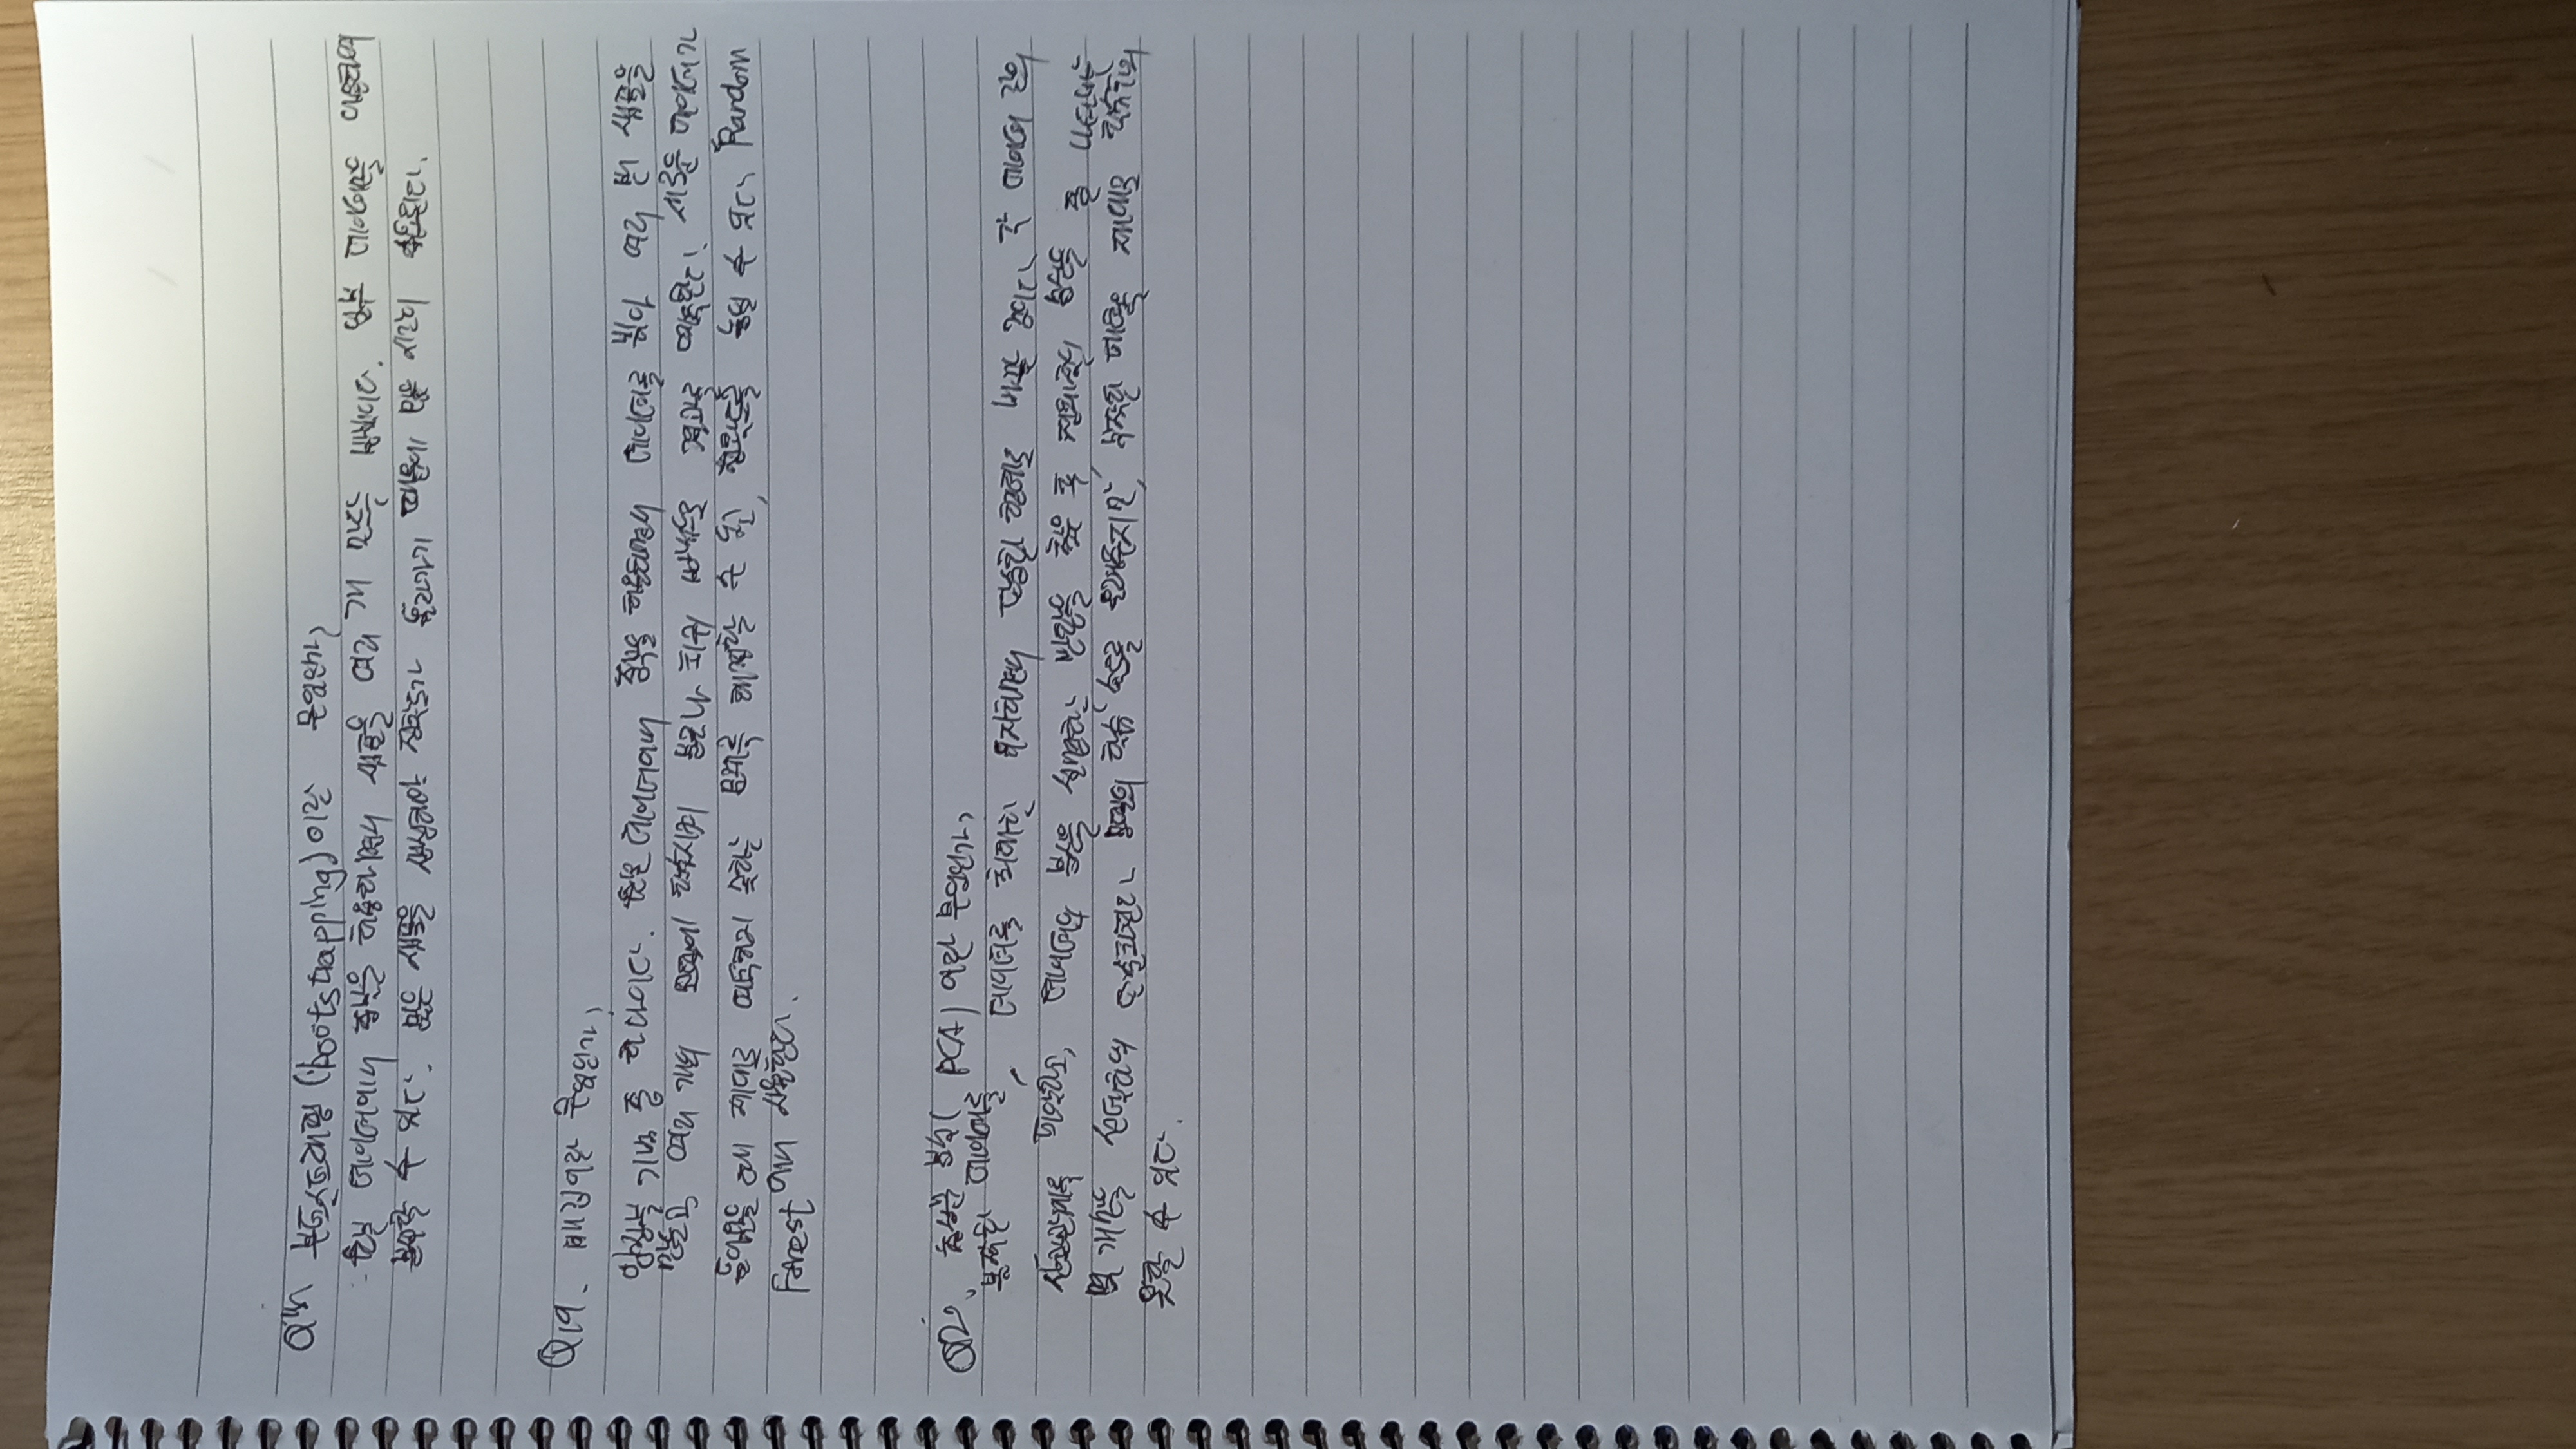 부트스트래핑(bootstrapping)이란 무엇인가?
원본 데이터에서 중복을 허용하면서 샘플을 여러 개 만드는 방법이다. 일부 데이터만을 이용하여
분석할 수 있다. 많은 샘플을 생성해야 정확도가 올라가기 때문에 많은 시간이 소요된다.
Q19. 배깅이란 무엇인가?
앙상블 기법 중 하나이다. 원본 데이터에서 중복을 허용하면서 데이터를 뽑아 여러 번 샘플을
만들고, 여러 개의 모델에 학습시켜 분류나 회귀 방법으로 결과를 예측한다. 새로운 데이터가
들어왔을 때 제대로 예측하지 못하는 문제를 해결할 수 있고, 정확도를 높일 수 있다. Random
Forest 에서 사용한다.
주성분 분석(PCA)이란 무엇인가?
복잡한 데이터를
데이터를 최대한 유지하면서 단순한 형태로 바꾸는 것이다. 각 데이터 간의
상관관계를 파악하고, 데이터의 분산을 설명하는 방향을 찾은 후, 전체적인 분산을 잘 나타내는
몇 개만을 선택하여 단순화한다. 모델의 학습 속도를 올려주지만, 복잡한 패턴을 제대로 학습하지
못할 수 있다.